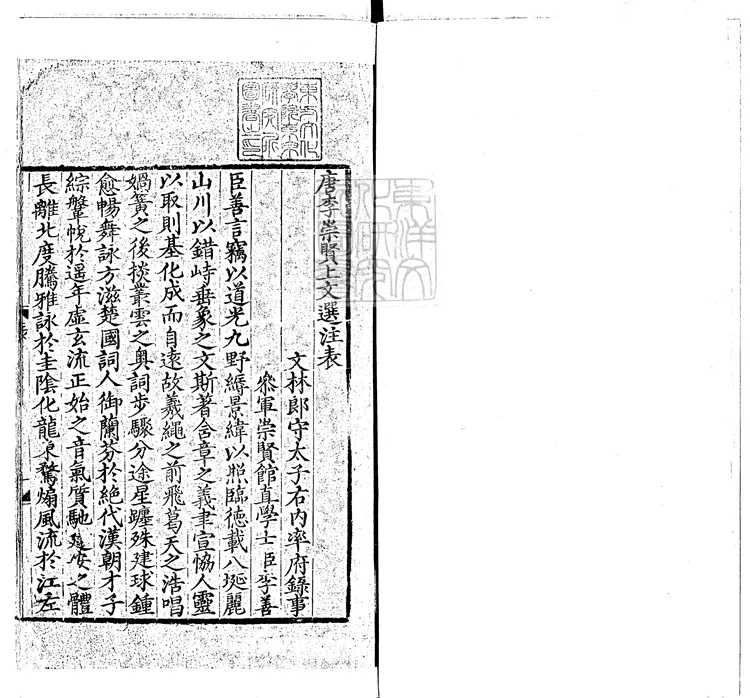 東方文化
學院
研究所
圖書之印
東洋文
化研究
唐李崇賢上文選注表
文林郎守太子右内率府錄事
叅軍崇賢館直學士臣李善
臣善言竊以道光九野縟景緯以照臨德載八埏麗
山川以錯峙垂象之文斯著含章之義聿宣恊人靈
以取則基化成而自遠故羲繩之前飛葛天之浩唱
媧簧之後掞叢雲之奥詞步驟分途星躔殊建球鍾
愈暢舞詠方滋楚國詞人御蘭芬於絶代漢朝才子
綜鞶帨於遥年虛玄流正始之音氣質馳建安之體
長離北度騰雅詠於圭陰化龍東騖煽風流於江左
表